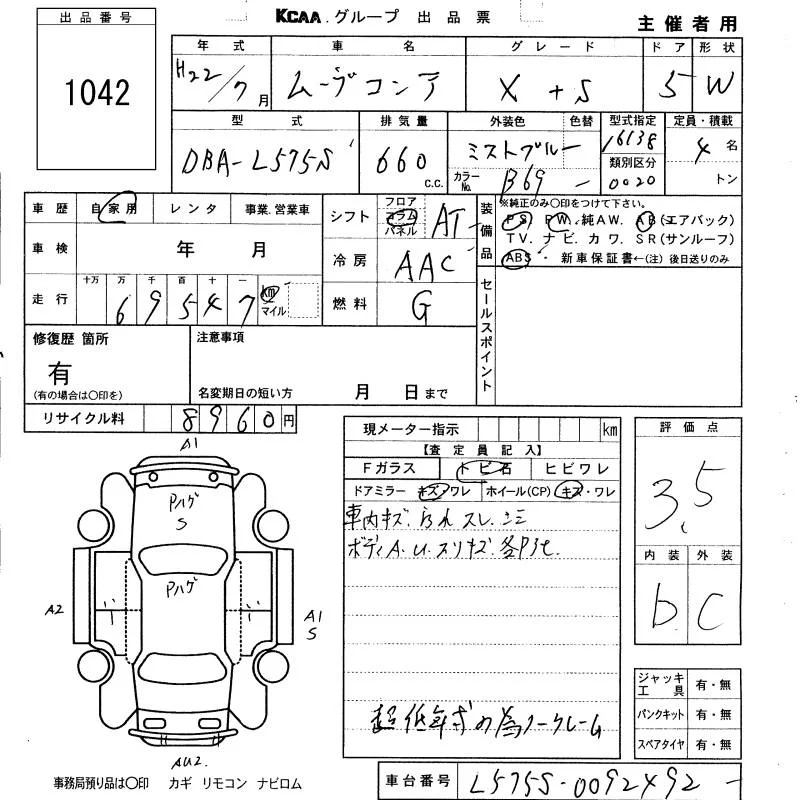 KCAA.グループ 出品票
主催者用
出品番号
1042
年式 車名 グレード ドア 形状
H22/7月 ムーヴコンテ X +S 5 W
型式 排気量 外装色 色替 型式指定 定員・積載
DBA-L575S 660 c.c. ミストブルー ー 16138 4名
カラーNo. B69 類別区分 0020 トン
車歴 自家用 レンタ 事業.営業車
車検 年 月
走行 十万 万 千 百 十 一
69547 km マイル
シフト フロア コラム パネル AT
冷房 AAC
燃料 G
装備品 ※純正のみ〇印をつけて下さい。
PS. PW. 純AW. AB(エアバック)
TV. ナビ. カワ. SR(サンルーフ)
ABS・ 新車保証書←(注) 後日送りのみ
セールスポイント
修復歴 箇所 注意事項
有
(有の場合は〇印を) 名変期日の短い方 月 日まで
リサイクル料 8960円
現メーター指示 km
【査定員記入】
Fガラス トビ石 ヒビワレ
ドアミラー キズ・ワレ ホイール(CP) キズ・ワレ
車内キズ.汚れ スレ.シミ
ボディA.U.スリキズ.各P3も.
超低年式の為ノークレーム
評価点
3.5
内装 外装
D C
ジャッキ工具 有・無
パンクキット 有・無
スペアタイヤ 有・無
A1
Pハゲ
S
Pハゲ
A2
A1
S
AU2.
事務局預り品は〇印 カギ リモコン ナビロム
車台番号 L575S-0092492